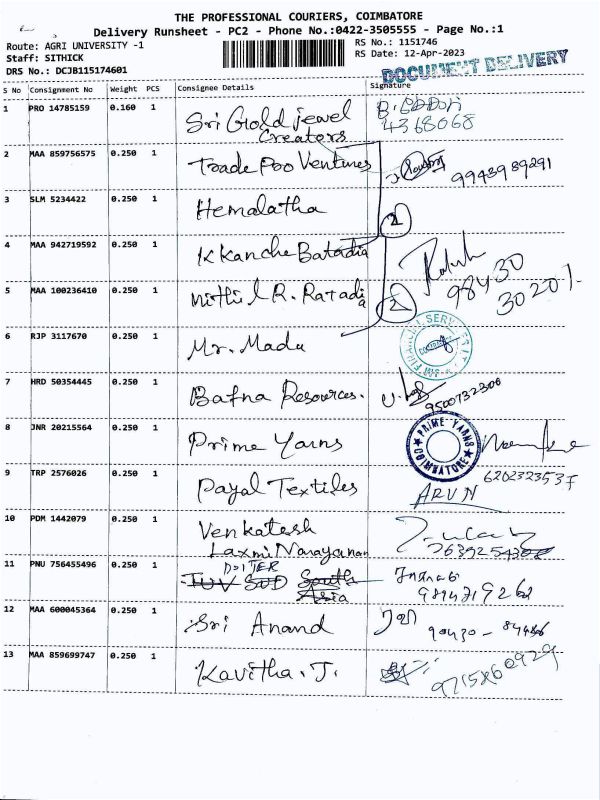 THE PROFESSIONAL COURIERS, COIMBATORE
Delivery Runsheet - PC2 - Phone No.:0422-3505555 - Page No.:1
Route: AGRI UNIVERSITY -1
RS No.: 1151746
Staff: SITHICK
RS Date: 12-Apr-2023
DRS No.: DCJB115174601
DOCUMENT DELIVERY
S No Consignment No Weight PCS Consignee Details Signature
1 PRO 14785159 0.160 1 Sri Gold jewel
Creators
4368068
2 MAA 859756575 0.250 1 Trade Poo Ventures 9943989291
3 SLM 5234422 0.250 1 Hemalatha 2
4 MAA 942719592 0.250 1 K Kanche Batadia
98430
5 MAA 100236410 0.250 1 Mithil R. Ratadia 2 30201
6 RJP 3117670 0.250 1 Mr. Madu
7 HRD 50354445 0.250 1 Bafna Resources. 9500732306
8 JNR 20215564 0.250 1 Prime Yarns PRIME YARNS COIMBATORE
9 TRP 2576026 0.250 1 Payal Textiles ARUN
10 PDM 1442079 0.250 1 Venkatesh
Laxmi Narayanan
11 PNU 756455496 0.250 1 TUV SUD South
Asia
12 MAA 600045364 0.250 1 Sri Anand
13 MAA 859699747 0.250 1 Kavitha. J.